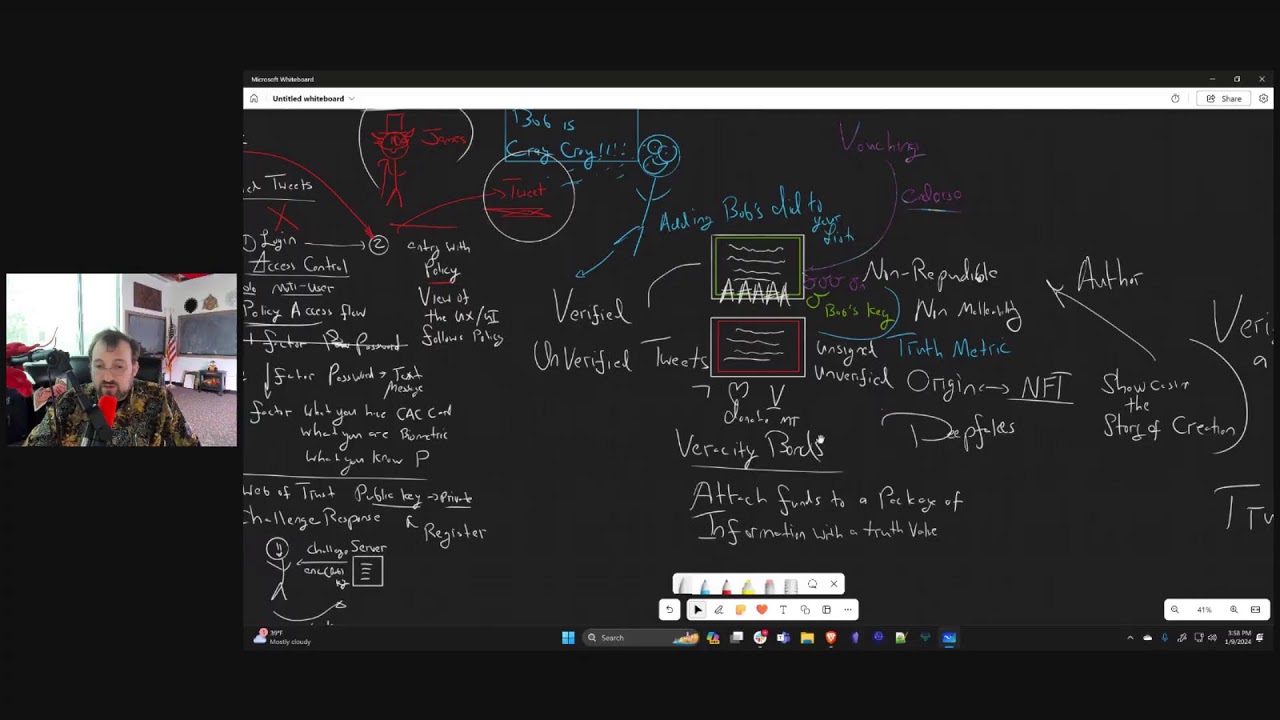 Microsoft Whiteboard
Untitled whiteboard
Share
James
Bob is
Cray Cray!!!!
Tweet
Vouching
Endorse
Adding Bob's did to
your list
Tweets
Login
2
Access Control
Policy Access flow
entry with
Policy
View of
the UX/UI
follows Policy
factor Password
factor Password → Text
Message
factor What you have CAC Card
What you are Biometric
What you know P
Web of Trust Public key → Private
Challenge Response
Register
Server
Verified
UnVerified Tweets
AAAAA
Bob's key
Non-Repudible
Non Malleability
unsigned
unverified
Truth Metric
Origin → NFT
Deepfakes
Author
Showcasin
the
Story of Creation
V
donate MT
Veracity Bonds
Attach funds to a Package of
Information with a truth Value
41%
39°F
Mostly cloudy
Search
3:58 PM
1/9/2024